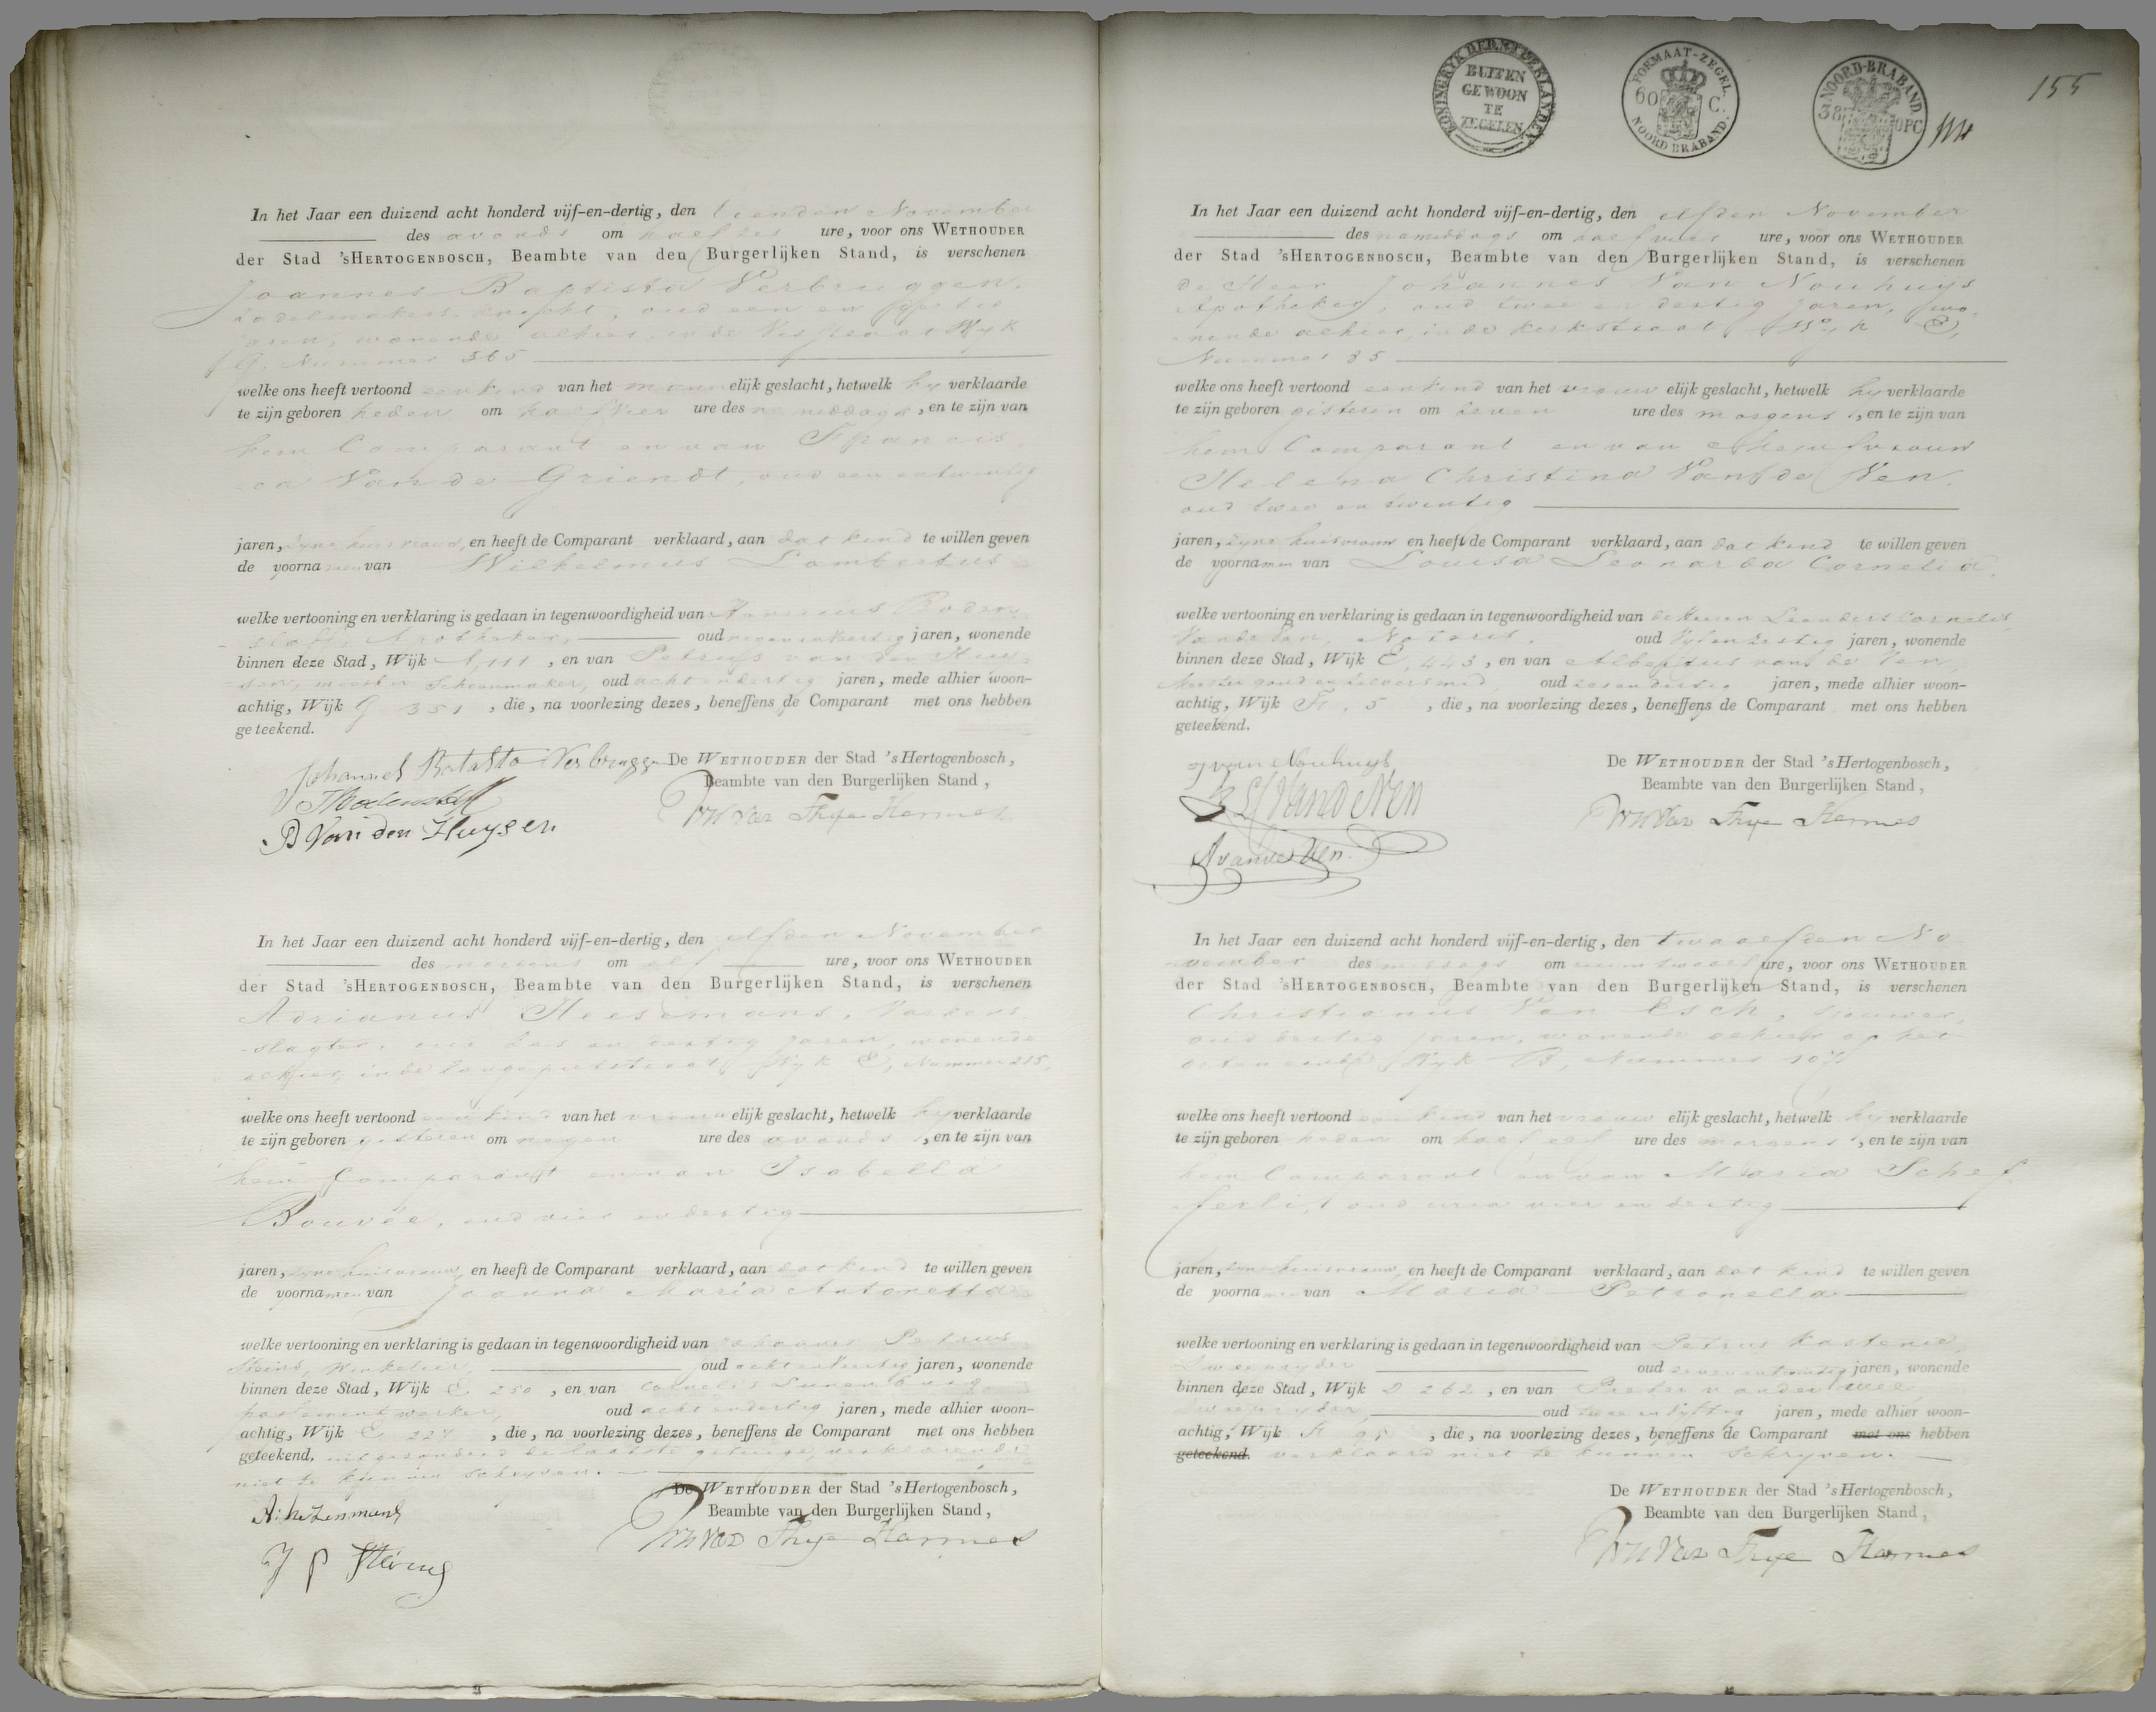 In het Jaar een duizend acht honderd vijf-en-dertig, den tienden November
des avonds om half zes ure, voor ons WETHOUDER
der Stad 'sHERTOGENBOSCH, Beambte van den Burgerlijken Stand, is verschenen
Joannes Baptista Verbruggen,
zadelmakers knecht, oud een en
jaren, wonende alhier, in de Wijk
G, Nummer 365
welke ons heeft vertoond een kind van het mannelijk geslacht, hetwelk hy verklaarde
te zijn geboren heden om half vier ure des namiddags, en te zijn van
hem Comparant en van Francis
ca Van de Griendt, oud een en twintig
jaren, zyne huisvrouw, en heeft de Comparant verklaard, aan dat kind te willen geven
de voornamen van Wilhelmus Lambertus
welke vertooning en verklaring is gedaan in tegenwoordigheid van Roden
Apotheker, oud negen en veertig jaren, wonende
binnen deze Stad, Wijk A, 111, en van Petrus van den
meester Schoenmaker, oud acht en dertig jaren, mede alhier woon-
achtig, Wijk G 351, die, na voorlezing dezes, beneffens de Comparant met ons hebben
geteekend.
De WETHOUDER der Stad 'sHertogenbosch,
Beambte van den Burgerlijken Stand,
P Van den Huysen
In het Jaar een duizend acht honderd vijf-en-dertig, den elfden November
des morgens om elf ure, voor ons WETHOUDER
der Stad 'sHERTOGENBOSCH, Beambte van den Burgerlijken Stand, is verschenen
Adrianus Heesemans, Varkens
slagter, oud zes en dertig jaren, wonende
alhier, in de langeputstraat, Wyk E, Nummer 215,
welke ons heeft vertoond een kind van het vrouwelijk geslacht, hetwelk hy verklaarde
te zijn geboren gisteren om negen ure des avonds, en te zijn van
hem Comparant en van Isabella
Bouvée, oud vier en dertig
jaren, zyne huisvrouw, en heeft de Comparant verklaard, aan dat kind te willen geven
de voornamen van Joanna Maria Antonetta
welke vertooning en verklaring is gedaan in tegenwoordigheid van Johannes Petrus
Steins, Winkelier, oud acht en veertig jaren, wonende
binnen deze Stad, Wijk E 250, en van Cornelis Lunenburg
passementwerker, oud acht en dertig jaren, mede alhier woon-
achtig, Wijk E 227, die, na voorlezing dezes, beneffens de Comparant met ons hebben
geteekend, uitgezonderd de laatste getuige, verklarende
niet te kunnen schryven.
De WETHOUDER der Stad 'sHertogenbosch,
Beambte van den Burgerlijken Stand,
J P Steins
KONINGRYK DER NEDERLANDEN
BUITEN
GEWOON
TE
ZEGELEN
FORMAAT-ZEGEL.
60 C.
NOORD BRABAND.
NOORD-BRABAND
38 OPC
155
In het Jaar een duizend acht honderd vijf-en-dertig, den elfden November
des namiddags om half vier ure, voor ons WETHOUDER
der Stad 'sHERTOGENBOSCH, Beambte van den Burgerlijken Stand, is verschenen
de Heer Johannes Van Nouhuys
Apotheker, oud twee en dertig jaren, wo-
nende alhier, in de kerkstraat, Wyk E,
Nummer 35
welke ons heeft vertoond een kind van het vrouwelijk geslacht, hetwelk hy verklaarde
te zijn geboren gisteren om zeven ure des morgens, en te zijn van
hem Comparant en van Mejufvrouw
Helena Christina Van de Ven,
oud twee en twintig
jaren, zyne huisvrouw en heeft de Comparant verklaard, aan dat kind te willen geven
de voornamen van Louisa Leonarda Cornelia,
welke vertooning en verklaring is gedaan in tegenwoordigheid van de Heeren Leendert Cornelis
Van de Ven, Notaris, oud vyf en zestig jaren, wonende
binnen deze Stad, Wijk E, 443, en van Albertus van de Ven,
Meester goud en zilversmid, oud zes en dertig jaren, mede alhier woon-
achtig, Wijk F, 5, die, na voorlezing dezes, beneffens de Comparant met ons hebben
geteekend.
De WETHOUDER der Stad 'sHertogenbosch,
Beambte van den Burgerlijken Stand,
J van Nouhuys
A van de Ven.
In het Jaar een duizend acht honderd vijf-en-dertig, den twaalfden No
vember des middags om ruim twaalf ure, voor ons WETHOUDER
der Stad 'sHERTOGENBOSCH, Beambte van den Burgerlijken Stand, is verschenen
Christianus Van Esch, sjouwer,
oud dertig jaren, wonende alhier op het
Orteneinde Wyk B, Nummer
welke ons heeft vertoond een kind van het vrouwelijk geslacht, hetwelk hy verklaarde
te zijn geboren heden om half elf ure des morgens, en te zijn van
hem Comparant en van Maria Schef
ferli, oud vier en dertig
jaren, zyne huisvrouw, en heeft de Comparant verklaard, aan dat kind te willen geven
de voornamen van Maria Petronella
welke vertooning en verklaring is gedaan in tegenwoordigheid van Petrus
oud zeven en twintig jaren, wonende
binnen deze Stad, Wijk D 262, en van Pieter van der Wee,
oud twee en vyftig jaren, mede alhier woon-
achtig, Wijk, die, na voorlezing dezes, beneffens de Comparant met ons hebben
geteekend. verklaard niet te kunnen schryven.
De WETHOUDER der Stad 'sHertogenbosch,
Beambte van den Burgerlijken Stand,